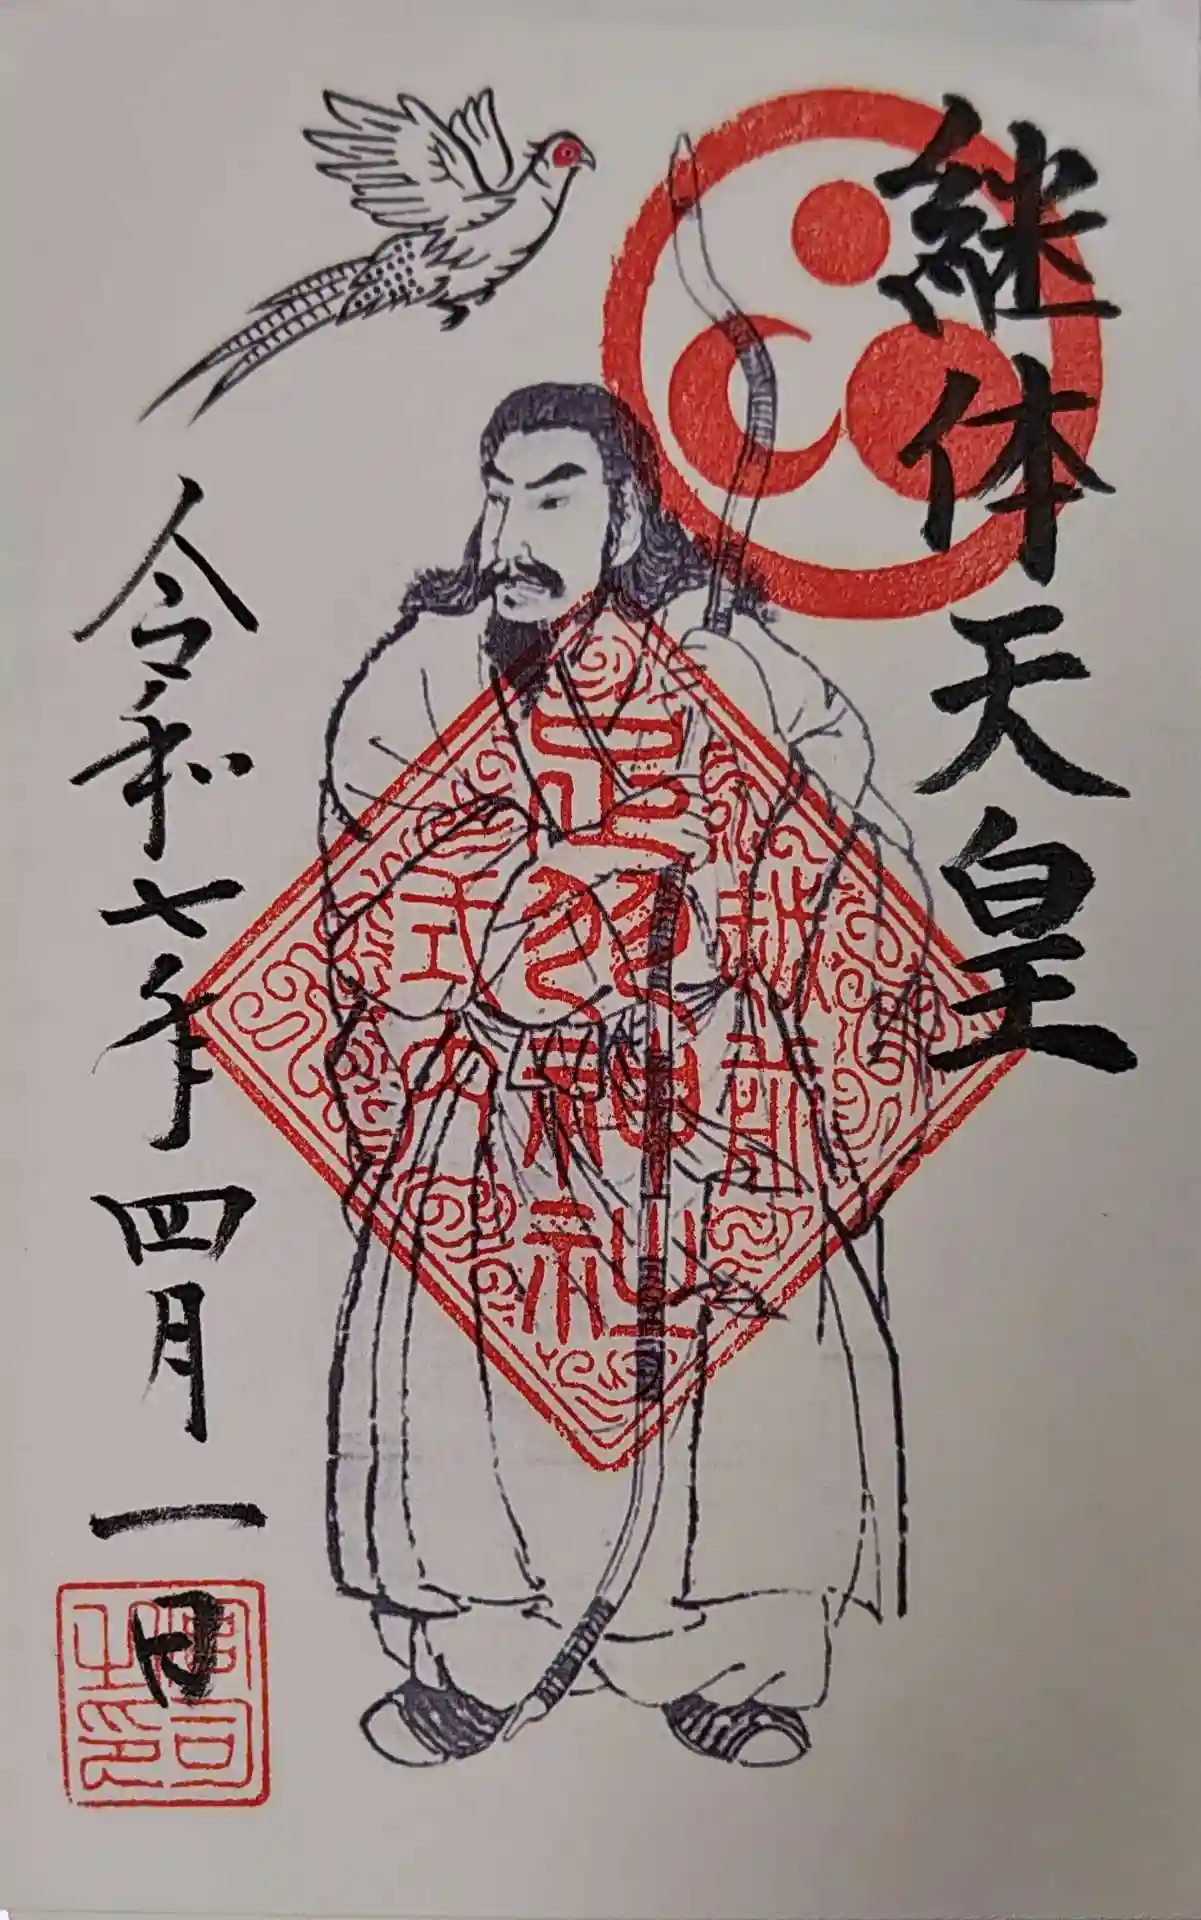 継体天皇
越前
足羽神社
式内
令和七年四月一日
宮司之印